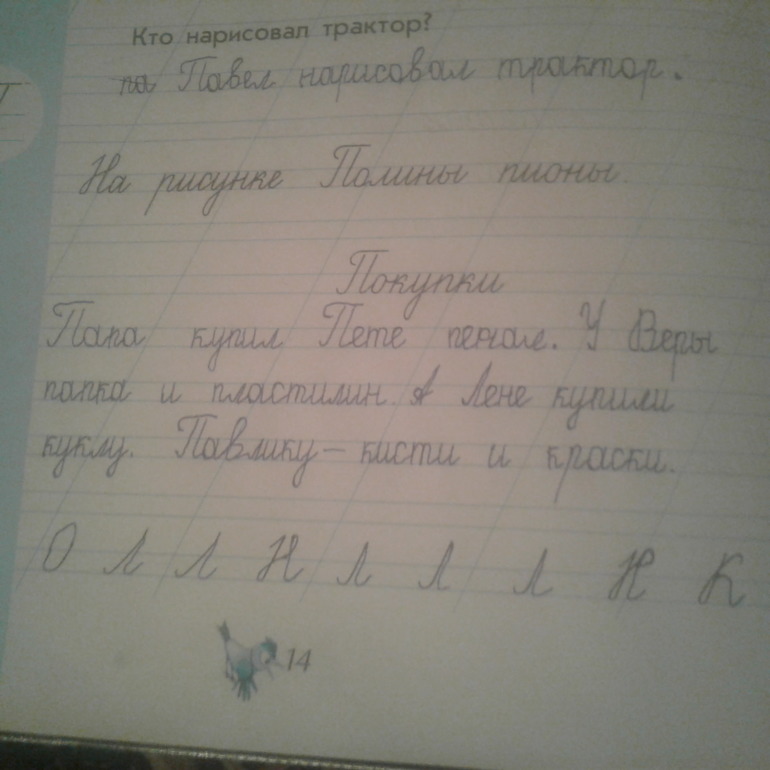 Кто нарисовал трактор?
па Павел нарисовал трактор.
На рисунке Полины пионы.
Покупки
Папа купил Пете пенал. У Веры
папка и пластилин. А Лене купили
куклу. Павлику – кисти и краски.
О Л Л Н Л Л Л Н К
14